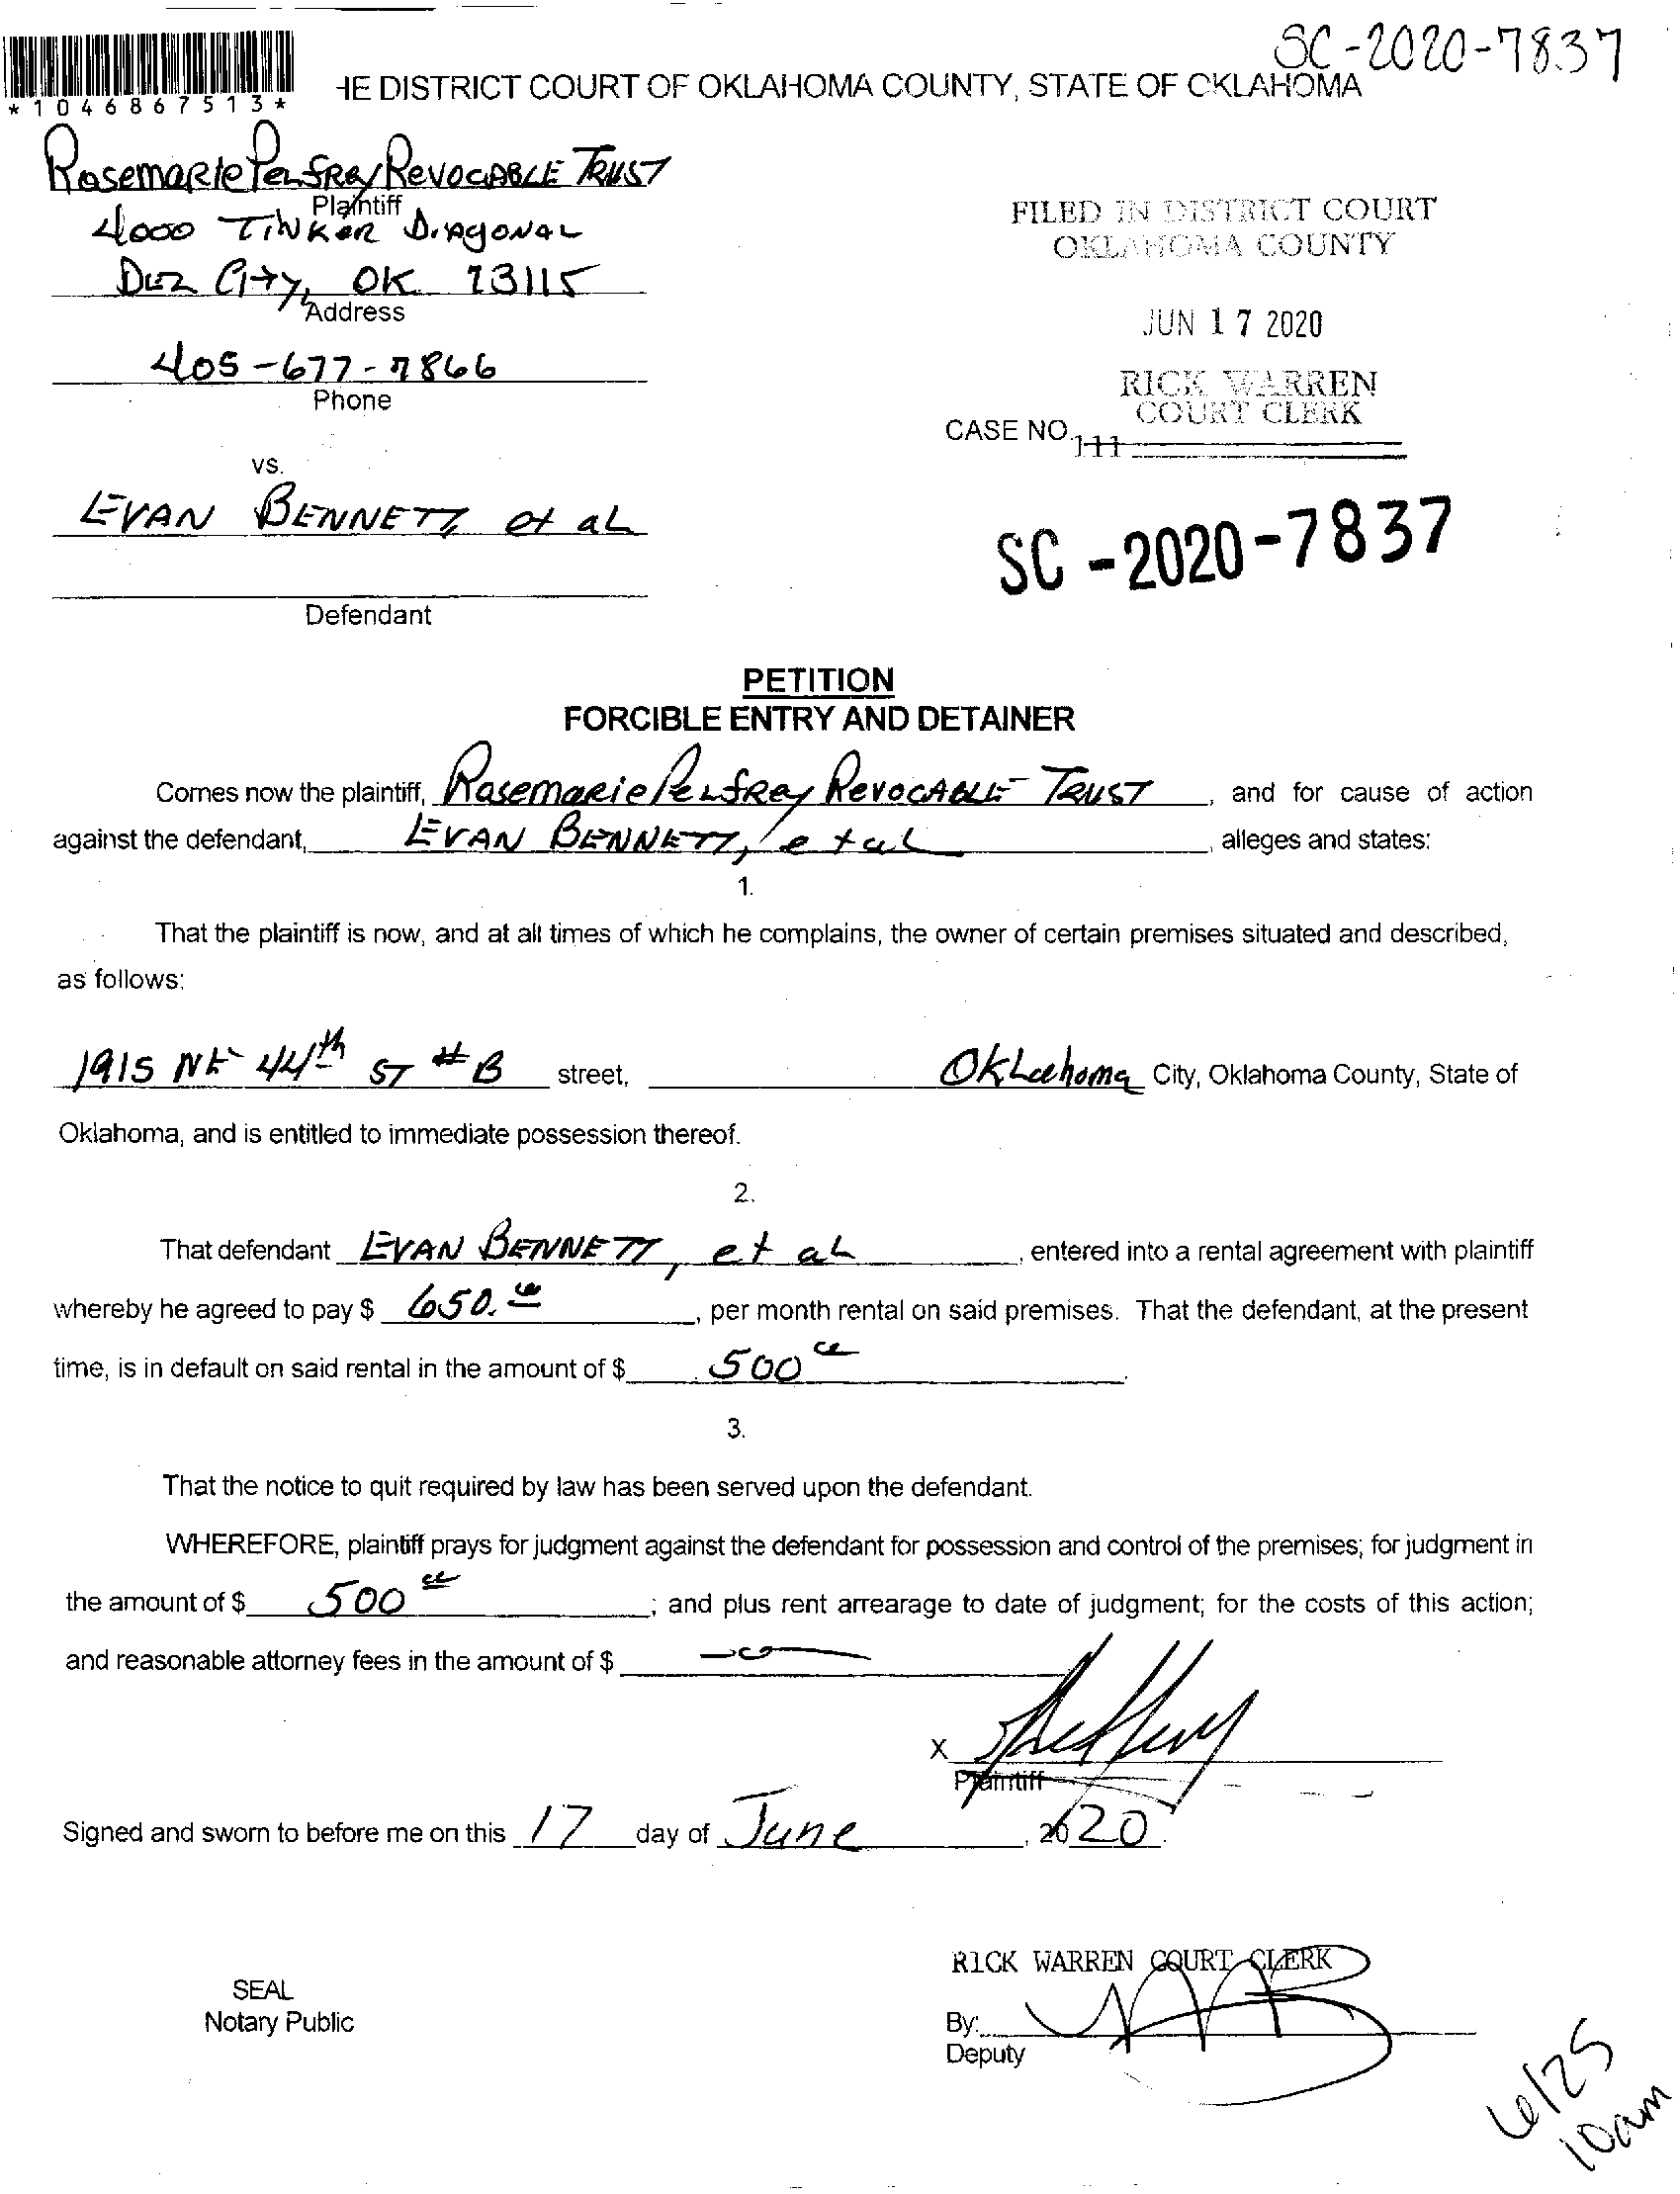 SC-2020-7837
*1046867513*
HE DISTRICT COURT OF OKLAHOMA COUNTY, STATE OF OKLAHOMA
Rosemarie Pelfrey Revocable Trust
Plaintiff
4000 Tinker Diagonal
Del City, OK 73115
Address
405-677-7866
Phone
FILED IN DISTRICT COURT
OKLAHOMA COUNTY
JUN 17 2020
RICK WARREN
COURT CLERK
CASE NO.
111
vs.
EVAN BENNETT, et al
Defendant
SC-2020-7837
PETITION
FORCIBLE ENTRY AND DETAINER
Comes now the plaintiff, Rosemarie Pelfrey Revocable Trust, and for cause of action
against the defendant, EVAN BENNETT, et al, alleges and states:
1.
That the plaintiff is now, and at all times of which he complains, the owner of certain premises situated and described,
as follows:
1915 NE 44th ST #B street, Oklahoma City, Oklahoma County, State of
Oklahoma, and is entitled to immediate possession thereof.
2.
That defendant EVAN BENNETT, et al, entered into a rental agreement with plaintiff
whereby he agreed to pay $ 650.00, per month rental on said premises. That the defendant, at the present
time, is in default on said rental in the amount of $ 500 00.
3.
That the notice to quit required by law has been served upon the defendant.
WHEREFORE, plaintiff prays for judgment against the defendant for possession and control of the premises; for judgment in
the amount of $ 500 00; and plus rent arrearage to date of judgment; for the costs of this action;
and reasonable attorney fees in the amount of $ -0-
X
Plaintiff
Signed and sworn to before me on this 17 day of June, 2020.
RICK WARREN COURT CLERK
SEAL
Notary Public
By:
Deputy
6/25
10am